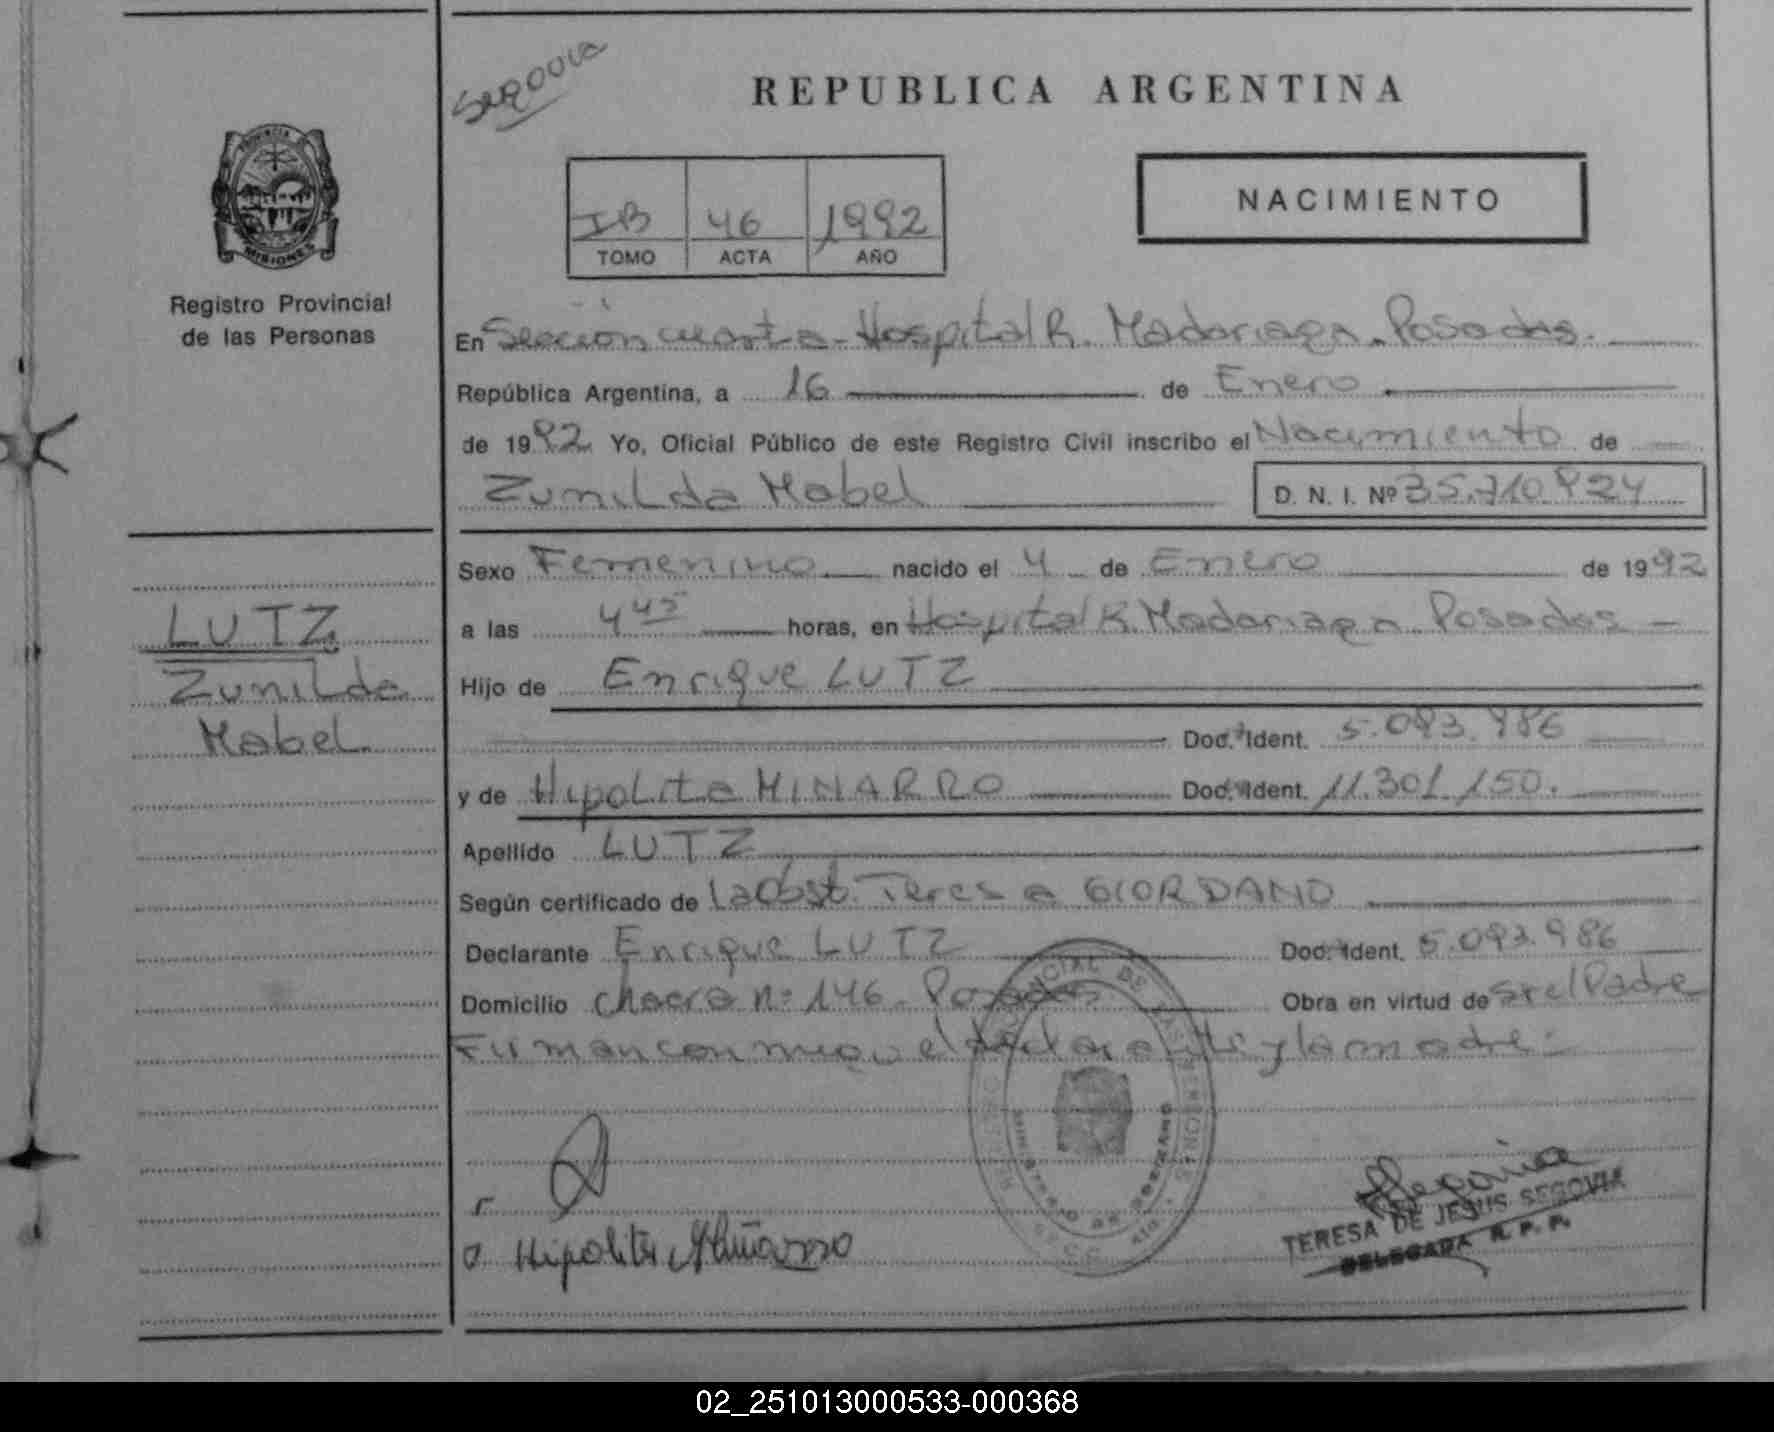 Segovia
REPUBLICA ARGENTINA
PROVINCIA DE
MISIONES
Registro Provincial
de las Personas
IB 46 1992
TOMO ACTA AÑO
NACIMIENTO
En Sección cuarta - Hospital R. Madariaga. Posadas.
República Argentina, a 16 de Enero
de 1992 Yo, Oficial Público de este Registro Civil inscribo el Nacimiento de
Zunilda Mabel D. N. I. Nº 35.710.924
Sexo Femenino nacido el 4 de Enero de 1992
a las 4 45 horas, en Hospital R. Madariaga Posadas -
LUTZ
Zunilda
Mabel
Hijo de Enrique LUTZ
Doc. Ident. 5.093.986
y de Hipolita MINARRO Doc. Ident. 11.301.150.
Apellido LUTZ
Según certificado de la Obst. Teresa GIORDANO
Declarante Enrique LUTZ Doc. Ident. 5.093.986
Domicilio Chacra nº 146 - Posadas. Obra en virtud de Ser el Padre
Firman conmigo el declarante y la madre.-
Hipolita Miñarro
Segovia
TERESA DE JESUS SEGOVIA
DELEGADA R. P. P.
MINISTERIO DE GOBIERNO
02_251013000533-000368